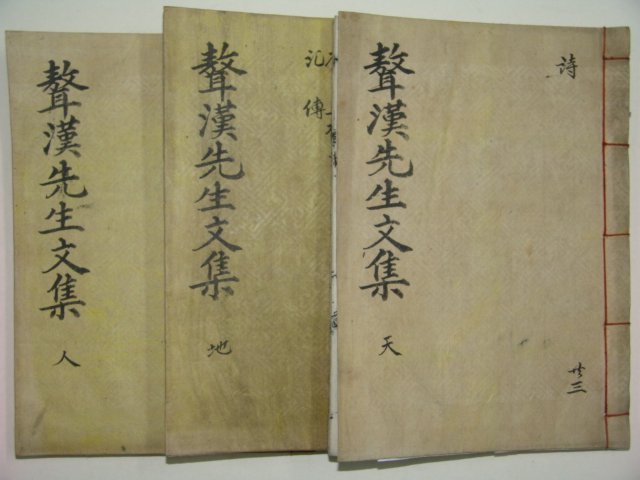 詩
聱漢先生文集
天
共三
記
傳
聱漢先生文集
地
聱漢先生文集
人